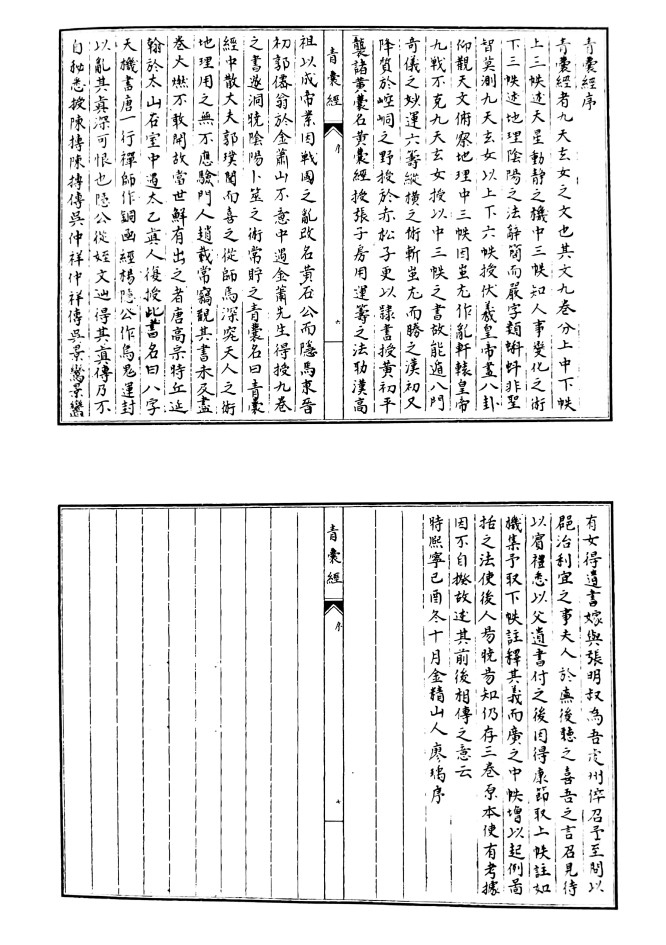 青囊經序
青囊經者九天玄女之文也其文九卷分上中下帙
上三帙述天星動静之機中三帙知人事變化之術
下三帙述地理陰陽之法辭簡而嚴字類蝌蚪非聖
智莫測九天玄女以上下六帙授伏羲皇帝畫八卦
仰觀天文俯察地理中三帙因蚩尤作亂軒轅皇帝
九戰不克九天玄女授以中三帙之書故能遁八門
奇儀之妙運六籌縱橫之術斬蚩尤而勝之漢初又
降質於崆峒之野授於赤松子更以隷書授黄初平
襲諸黄囊名黄囊經授張子房用運籌之法助漢高
青囊經
序
六
祖以成帝業因戰國之亂改名黄石公而隱焉東晉
初郭僑翁於金蕭山不意中遇金蕭先生得授九卷
之書遂洞曉陰陽卜筮之術常貯之青囊名曰青囊
經中散大夫郭璞聞而喜之從師焉深究天人之術
地理用之無不應驗門人趙載常竊觀其書未及盡
卷火燃不敢開故當世鮮有出之者唐高宗時丘延
翰於太山石室中遇太乙眞人復授此書名曰八字
天機書唐一行禪師作銅函經楊隱公作烏鬼運封
以亂其眞深可恨也隱公從姪文迪得其眞傳乃不
自秘悉授陳摶陳摶傳吳仲祥仲祥傳吳景鸞景鸞
有女得遺書嫁與張明叔為吾定州倅召予至問以
郶治利宜之事夫人於㢘後聽之喜吾之言召見待
以賓禮悉以父遺書付之後因得康節取上帙註如
機集予取下帙註釋其義而廣之中帙增以起例啚
括之法使後人昜曉昜知仍存三卷原本使有考據
因不自揆故述其前後相傳之意云
時熙寧己酉冬十月金精山人廖瑀序
青囊經
序
七